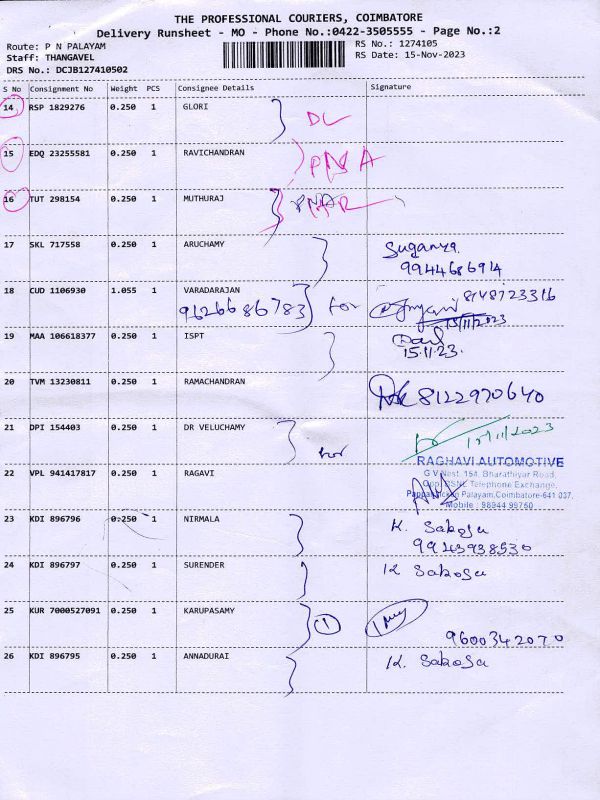 THE PROFESSIONAL COURIERS, COIMBATORE
Delivery Runsheet - MO - Phone No.:0422-3505555 - Page No.:2
Route: P N PALAYAM
RS No.: 1274105
Staff: THANGAVEL
RS Date: 15-Nov-2023
DRS No.: DCJB127410502
S No Consignment No Weight PCS Consignee Details Signature
14 RSP 1829276 0.250 1 GLORI DL
15 EDQ 23255581 0.250 1 RAVICHANDRAN PNA
16 TUT 298154 0.250 1 MUTHURAJ
17 SKL 717558 0.250 1 ARUCHAMY Suganya
9944686914
18 CUD 1106930 1.055 1 VARADARAJAN 8148723316
9626686783 for 15/11/2023
19 MAA 106618377 0.250 1 ISPT
15.11.23.
20 TVM 13230811 0.250 1 RAMACHANDRAN 8122970640
21 DPI 154403 0.250 1 DR VELUCHAMY for 15/11/2023
RAGHAVI AUTOMOTIVE
22 VPL 941417817 0.250 1 RAGAVI G V Nest, 154, Bharathiyar Road,
Opp. BSNL Telephone Exchange,
Palayam, Coimbatore-641 037.
Mobile : 98944 99750
23 KDI 896796 0.250 1 NIRMALA K. Sakosa
9943938530
24 KDI 896797 0.250 1 SURENDER K Sakosa
25 KUR 7000527091 0.250 1 KARUPASAMY 1
9600342070
26 KDI 896795 0.250 1 ANNADURAI K. Sakosa